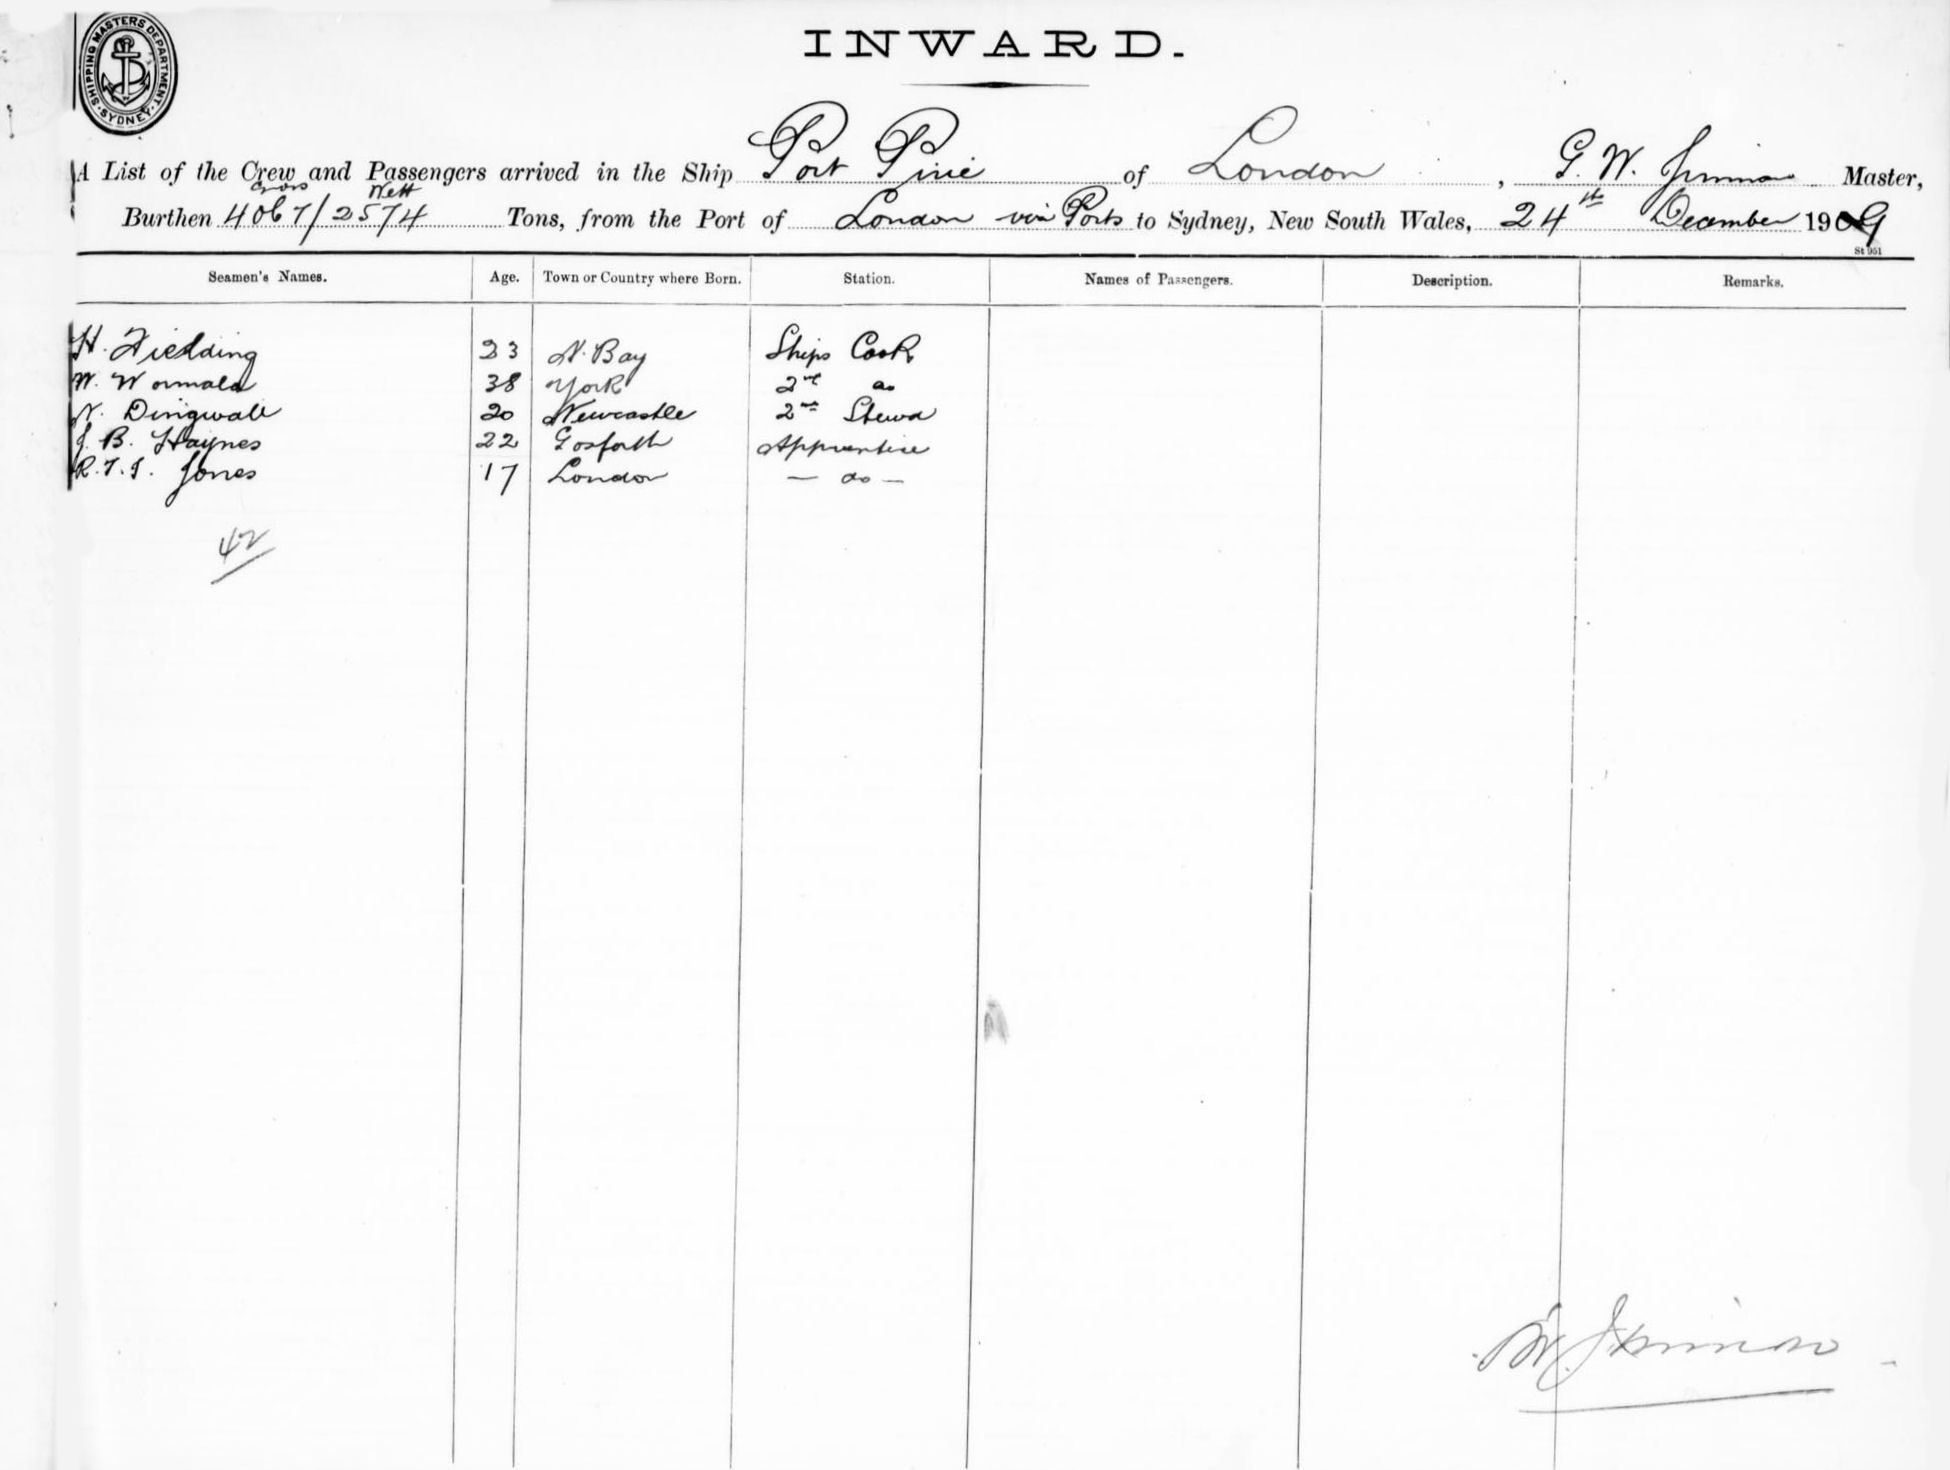 SHIPPING MASTERS DEPARTMENT. SYDNEY
INWARD.
A List of the Crew and Passengers arrived in the Ship Port Pirie of London, G. W. Master,
Gross Nett
Burthen 4067/2574 Tons, from the Port of London via Ports to Sydney, New South Wales, 24th December 1909
St 951
Seamen's Names. Age. Town or Country where Born. Station. Names of Passengers. Description. Remarks.
H. Fielding 23 N. Bay Ships Cook
W. Wormald 38 York 2nd do
N. Dingwall 20 Newcastle 2nd Stewd
J. B. Haynes 22 Gosforth Apprentice
R. T. I. Jones 17 London — do —
42